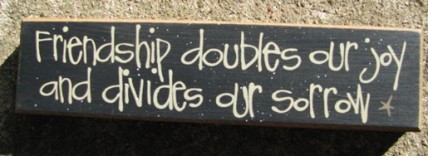 Friendship doubles our joy
and divides our sorrow